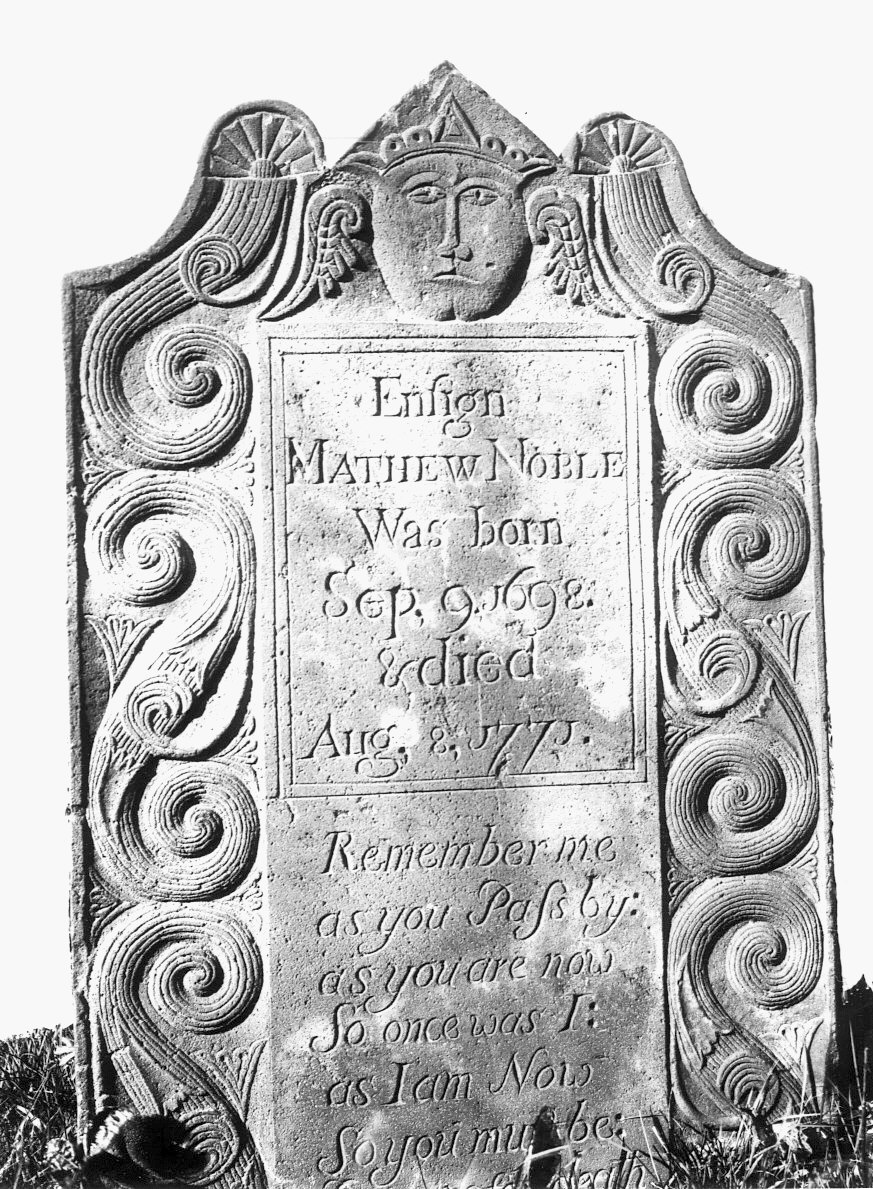 Ensign
MATHEW NOBLE
Was born
Sep. 9. 1698.
& died
Aug. 8. 1771.
Remember me
as you Paſs by:
as you are now
So once was I:
as I am Now
So you must be:
Death